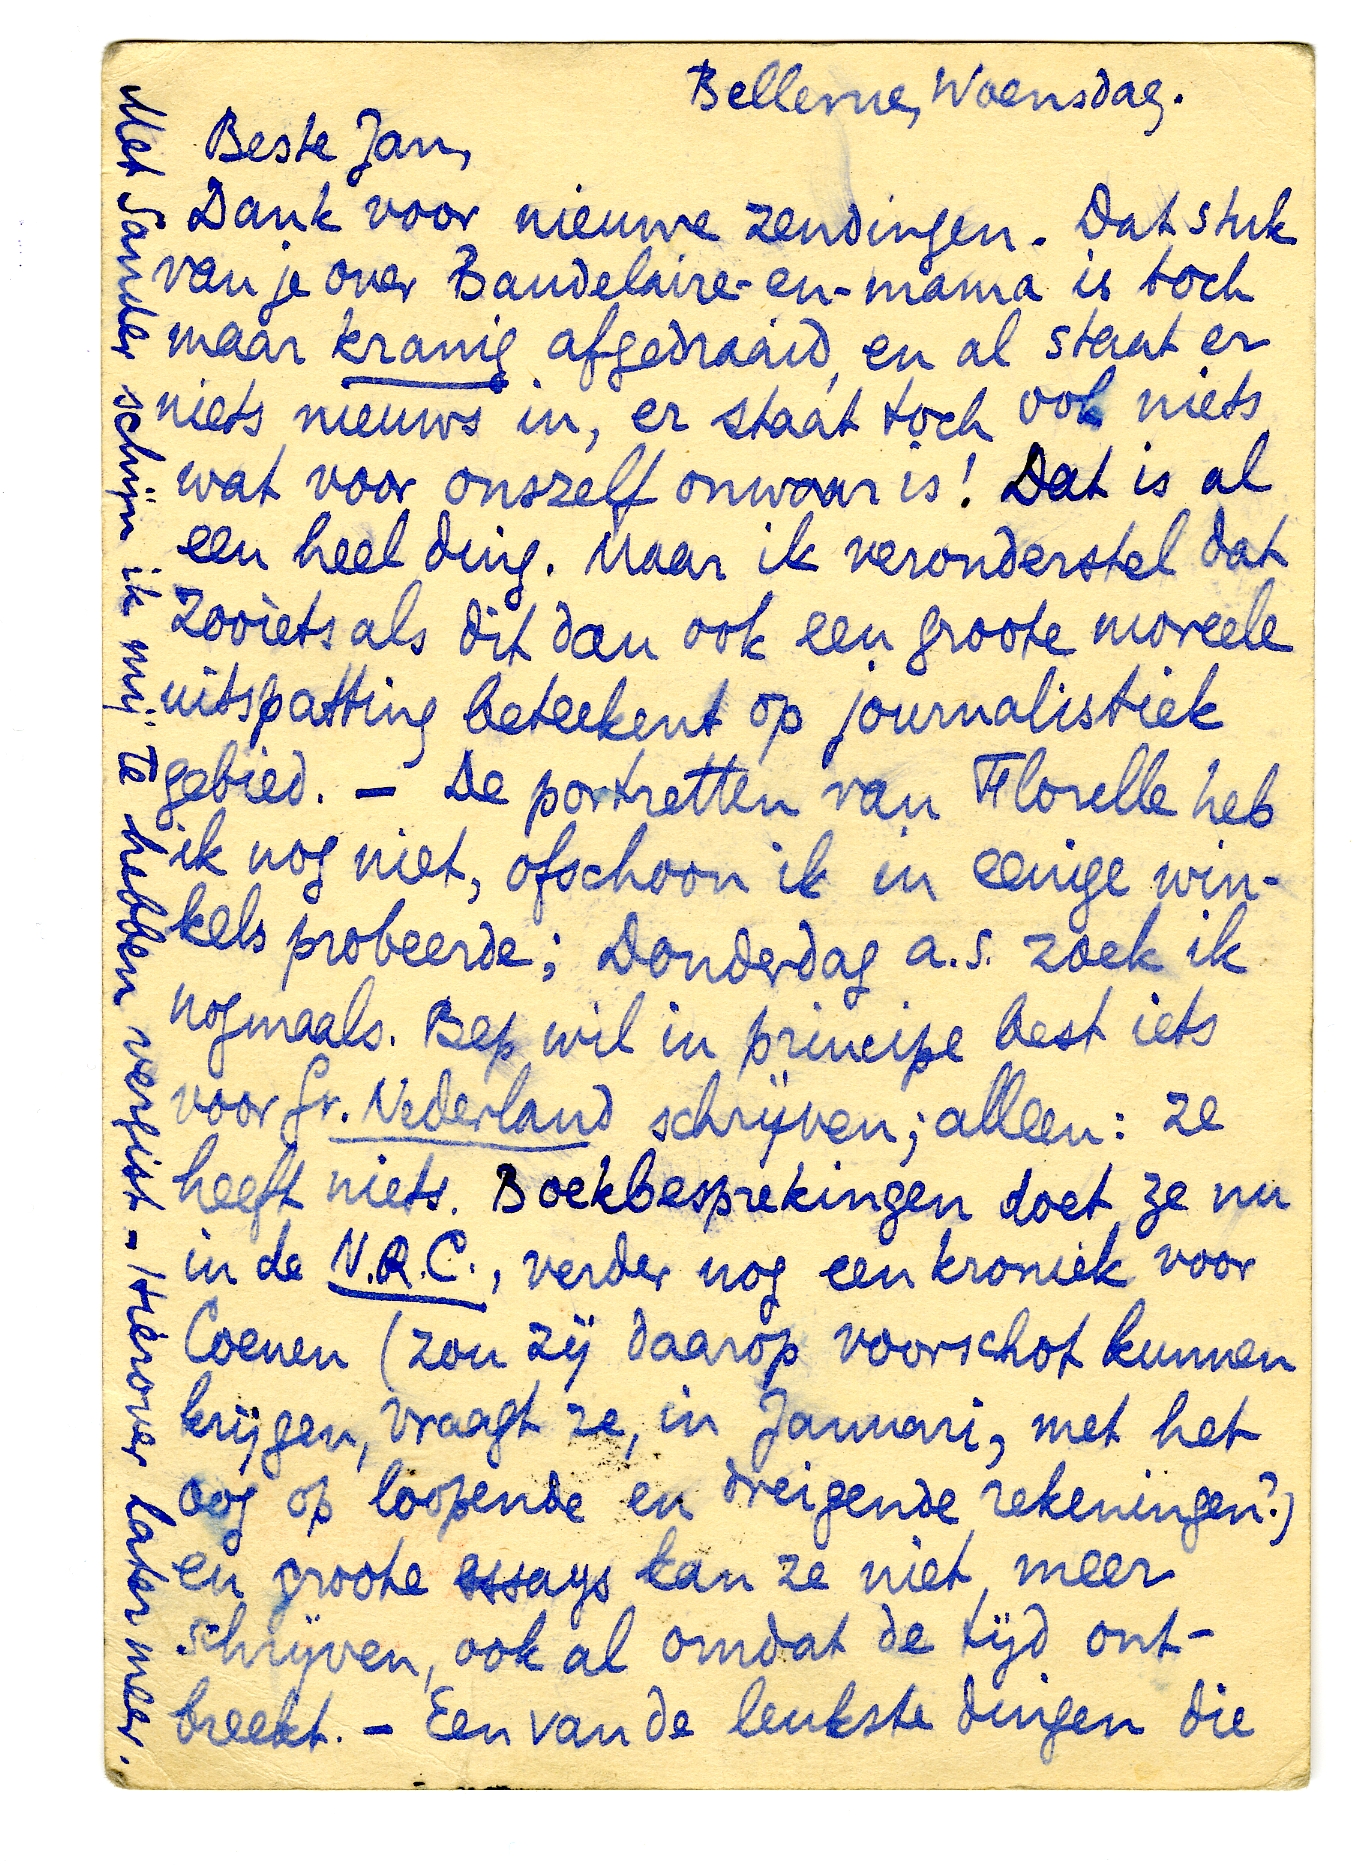 Bellevue, Woensdag.
Beste Jan,
Dank voor nieuwe zendingen. Dat stuk
van je over Baudelaire-en-mama is toch
maar kranig afgedraaid, en al staat er
niets nieuws in, er staat toch ook niets
wat voor onszelf onwaar is! Dat is al
een heel ding. Maar ik veronderstel dat
zooiets als dit dan ook een groote moreele
uitspatting beteekent op journalistiek
gebied. — De portretten van Florelle heb
ik nog niet, ofschoon ik in eenige win-
kels probeerde; Donderdag a.s. zoek ik
nogmaals. Bep wil in principe best iets
voor Gr. Nederland schrijven; alleen: ze
heeft niets. Boekbesprekingen doet ze nu
in de N.R.C., verder nog een kroniek voor
Coenen (zou zij daarop voorschot kunnen
krijgen, vraagt ze, in Januari, met het
oog op loopende en dreigende rekeningen?)
en groote essays kan ze niet meer
schrijven, ook al omdat de tijd ont-
breekt. — Een van de leukste dingen die
Met Sander schijn ik mij te hebben vergist. - Hierover later meer.